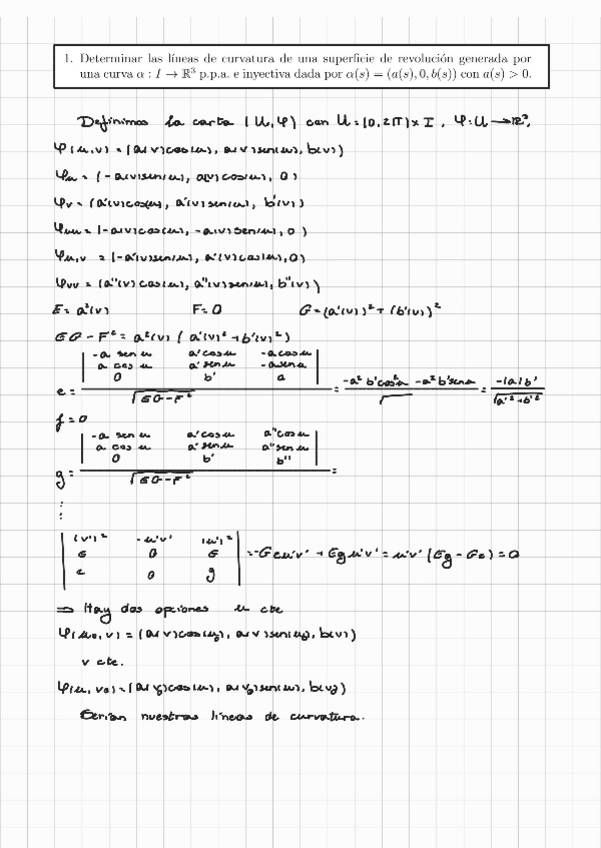 1. Determinar las líneas de curvatura de una superficie de revolución generada por
una curva α : I → ℝ³ p.p.a. e inyectiva dada por α(s) = (a(s), 0, b(s)) con a(s) > 0.
Definimos la carta (U,φ) con U=(0,2π)×I, φ:U→ℝ³,
φ(u,v) = (a(v)cos(u), a(v)sen(u), b(v))
φu = (-a(v)sen(u), a(v)cos(u), 0)
φv = (a'(v)cos(u), a'(v)sen(u), b'(v))
φuu = (-a(v)cos(u), -a(v)sen(u), 0)
φu,v = (-a'(v)sen(u), a'(v)cos(u), 0)
φvv = (a''(v)cos(u), a''(v)sen(u), b''(v))
E = a²(v) F = 0 G = (a'(v))² + (b'(v))²
EG - F² = a²(v) (a'(v)² + b'(v)²)
e = | -a sen u a' cos u -a cos u | a cos u a' sen u -a sen u | 0 b' a | / √EG-F² = -a² b' cos² u - a² b' sen u / √ = -|a| b' / √a'² + b'²
f = 0
g = | -a sen u a' cos u a'' cos u | a cos u a' sen u a'' sen u | 0 b' b'' | / √EG-F² =
⋮
| (v')² -u'v' (u')² |
| E 0 G | = -Geu'v' + Egu'v' = u'v' (Eg - Ge) = 0
| e 0 g |
⇒ Hay dos opciones u cte
φ(u₀, v) = (a(v)cos(u₀), a(v)sen(u₀), b(v))
v cte.
φ(u, v₀) = (a(v₀)cos(u), a(v₀)sen(u), b(v₀))
Serían nuestras líneas de curvatura.